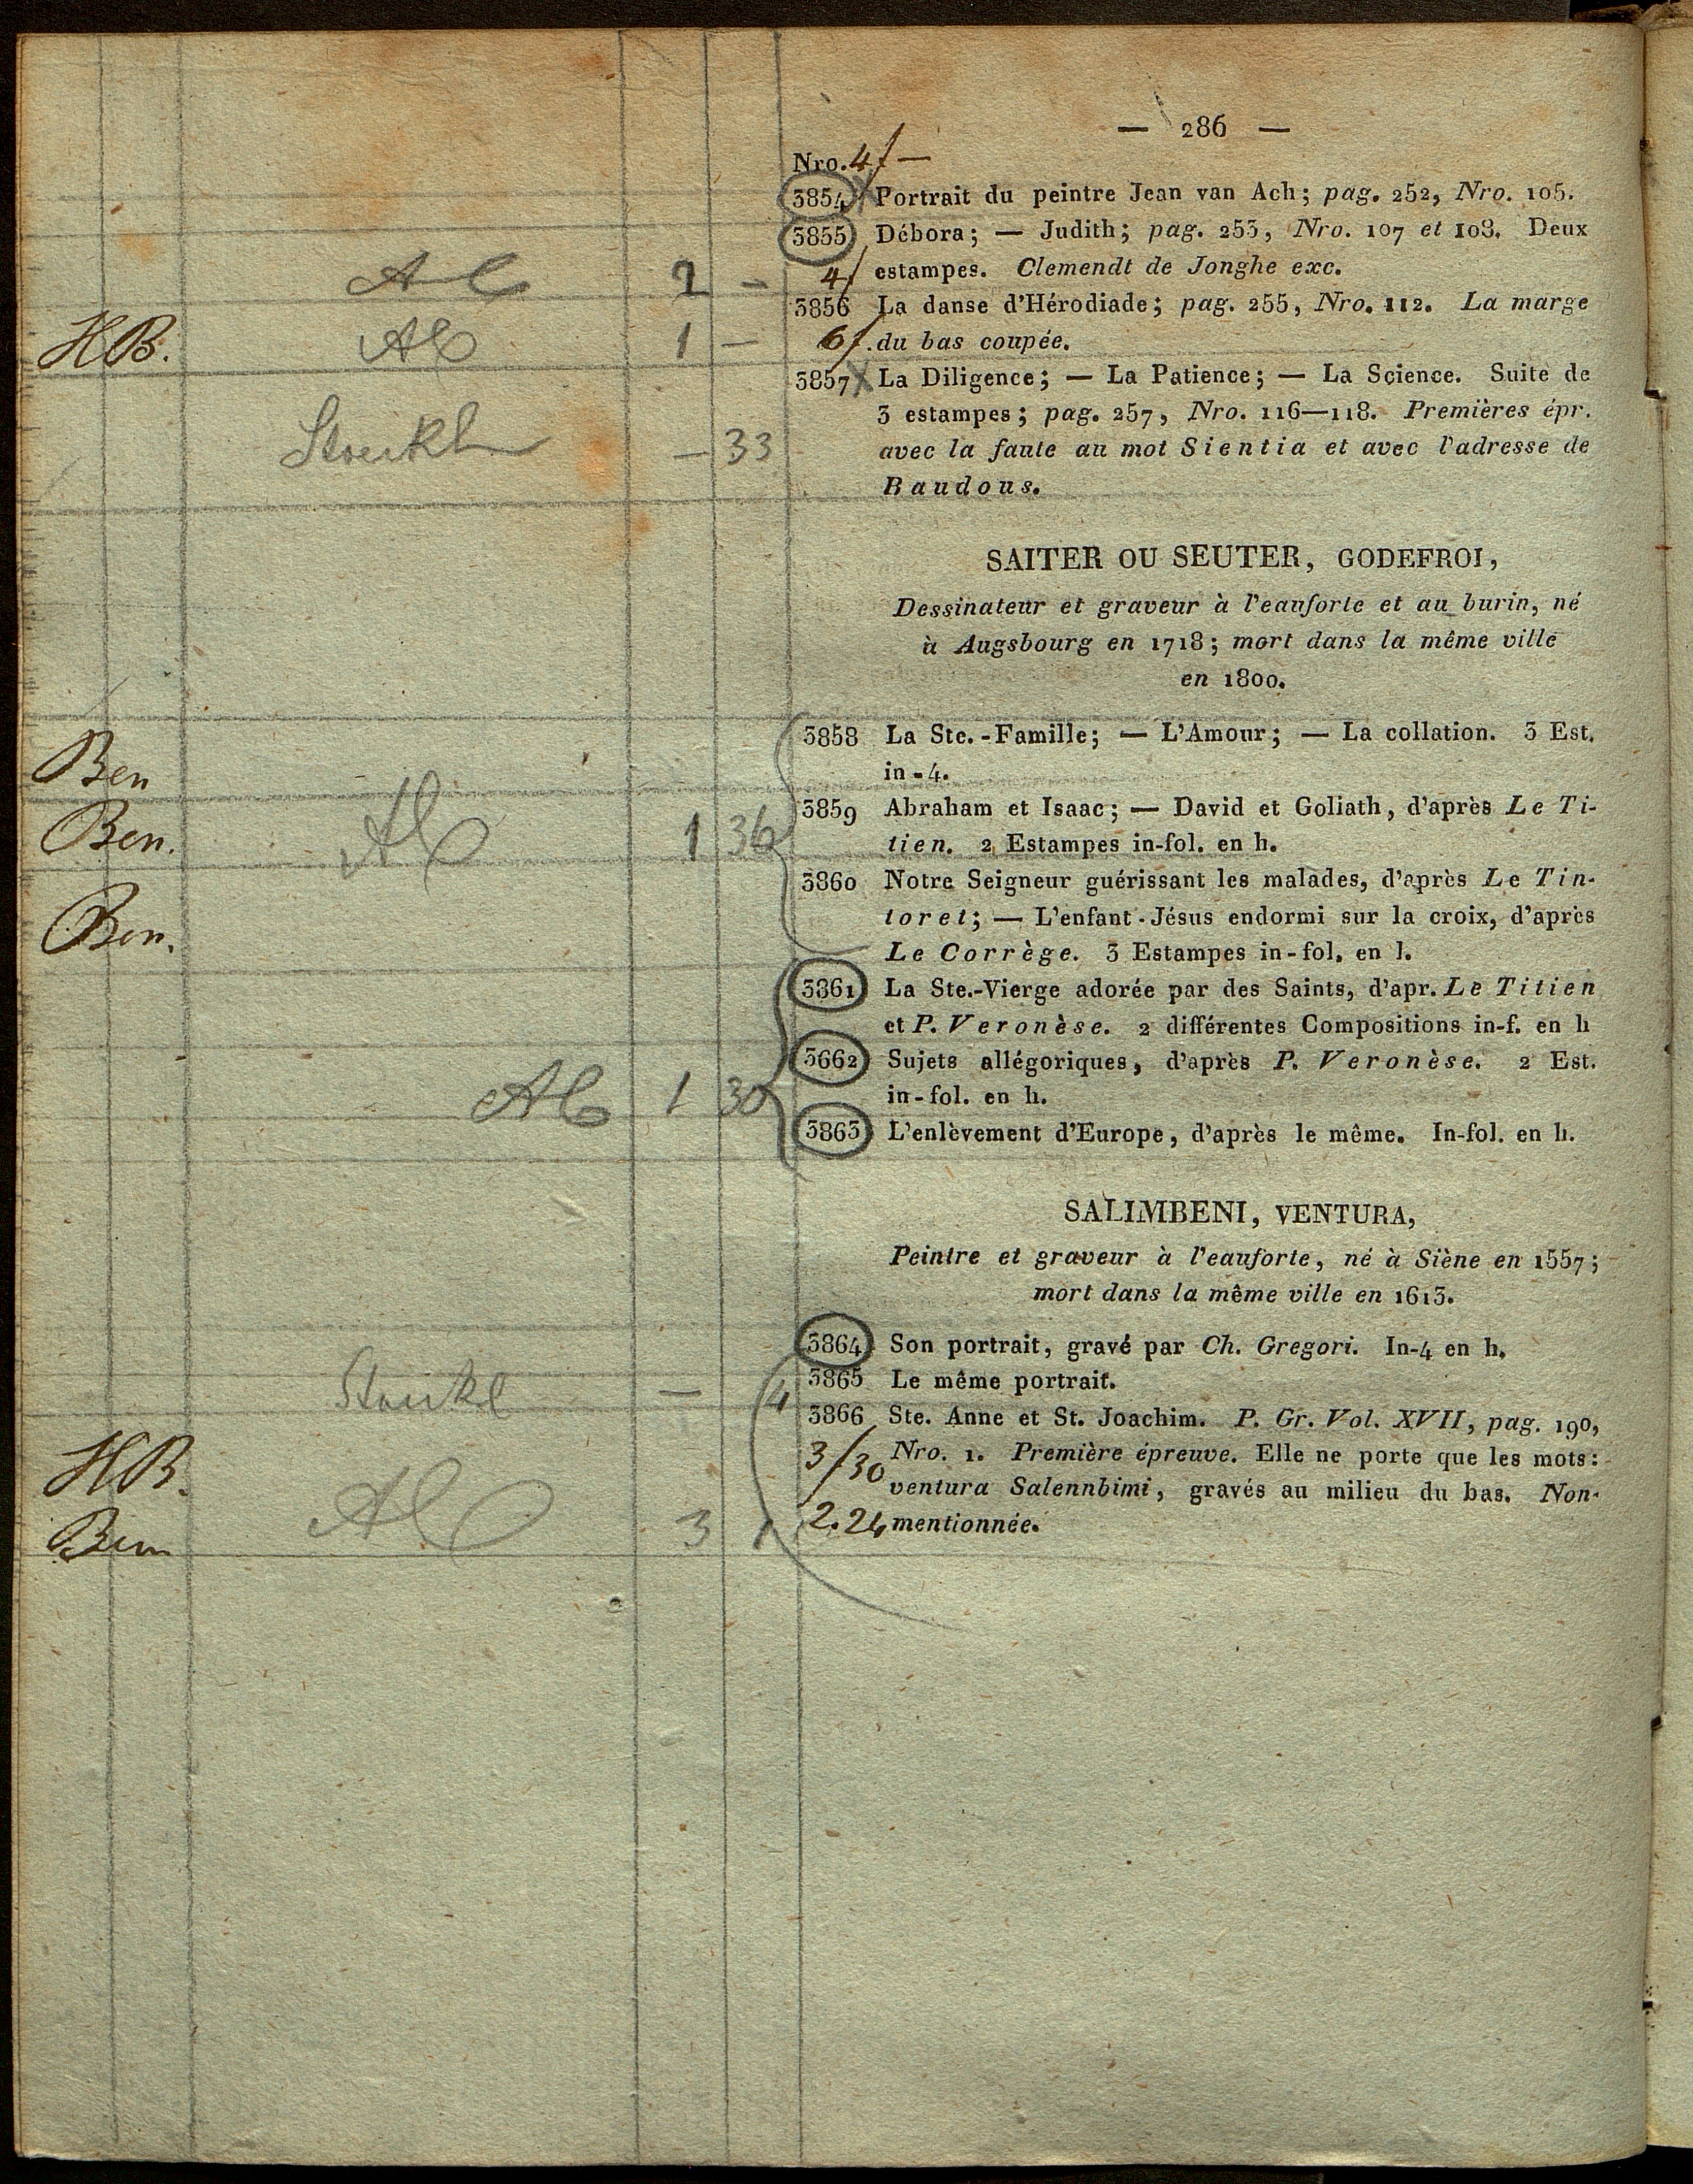 — 286 —
Nro. 4f —
3854 Portrait du peintre Jean van Ach; pag. 252, Nro. 105.
3855 Débora; — Judith; pag. 253, Nro. 107 et 108. Deux
Al 2 - 4f estampes. Clemendt de Jonghe exc.
3856 La danse d'Hérodiade; pag. 255, Nro. 112. La marge
HB. Al 1 — 6f. du bas coupée.
3857 La Diligence; — La Patience; — La Science. Suite de
3 estampes; pag. 257, Nro. 116—118. Premières épr.
— 33 avec la faute au mot Sientia et avec l'adresse de
Baudous.
SAITER OU SEUTER, GODEFROI,
Dessinateur et graveur à l'eauforte et au burin, né
à Augsbourg en 1718; mort dans la même ville
en 1800.
3858 La Ste.-Famille; — L'Amour; — La collation. 3 Est.
Ben in-4.
3859 Abraham et Isaac; — David et Goliath, d'après Le Ti-
Ben. Al 1 36 tien. 2 Estampes in-fol. en h.
3860 Notre Seigneur guérissant les malades, d'après Le Tin-
Ben. toret; — L'enfant-Jésus endormi sur la croix, d'après
Le Corrège. 3 Estampes in-fol. en l.
3861 La Ste.-Vierge adorée par des Saints, d'apr. Le Titien
et P. Veronèse. 2 différentes Compositions in-f. en h
3662 Sujets allégoriques, d'après P. Veronèse. 2 Est.
Al 1 30 in-fol. en h.
3863 L'enlèvement d'Europe, d'après le même. In-fol. en h.
SALIMBENI, VENTURA,
Peintre et graveur à l'eauforte, né à Siène en 1557;
mort dans la même ville en 1613.
3864 Son portrait, gravé par Ch. Gregori. In-4 en h.
— 4 3865 Le même portrait.
3866 Ste. Anne et St. Joachim. P. Gr. Vol. XVII, pag. 190,
HB. 3/30 Nro. 1. Première épreuve. Elle ne porte que les mots:
ventura Salennbimi, gravés au milieu du bas. Non-
Al 3 1 2.24 mentionnée.